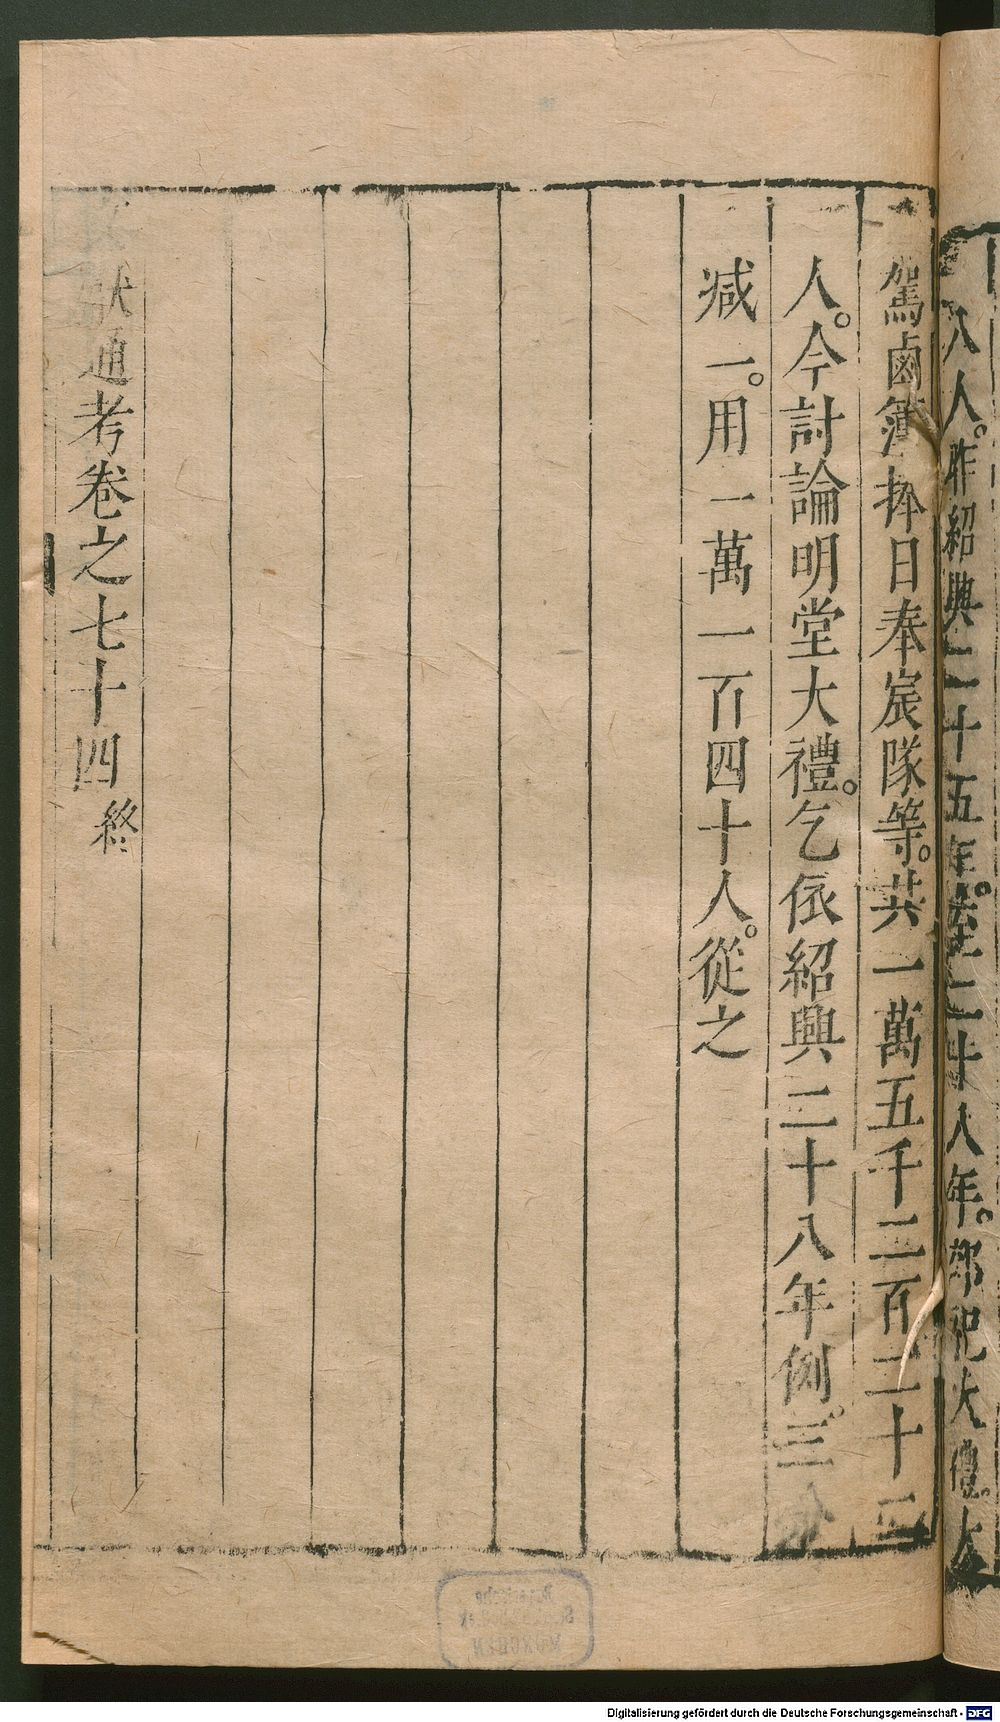 八人。昨紹興二十五年。至二十八年。郊祀大禮。大
駕鹵簿捧日奉宸隊等。共一萬五千二百二十二
人。今討論明堂大禮。乞依紹興二十八年例。三分
減一。用一萬一百四十人。從之
獻通考卷之七十四終
Bayerische
Staatsbibliothek
MÜNCHEN
Digitalisierung gefördert durch die Deutsche Forschungsgemeinschaft - DFG